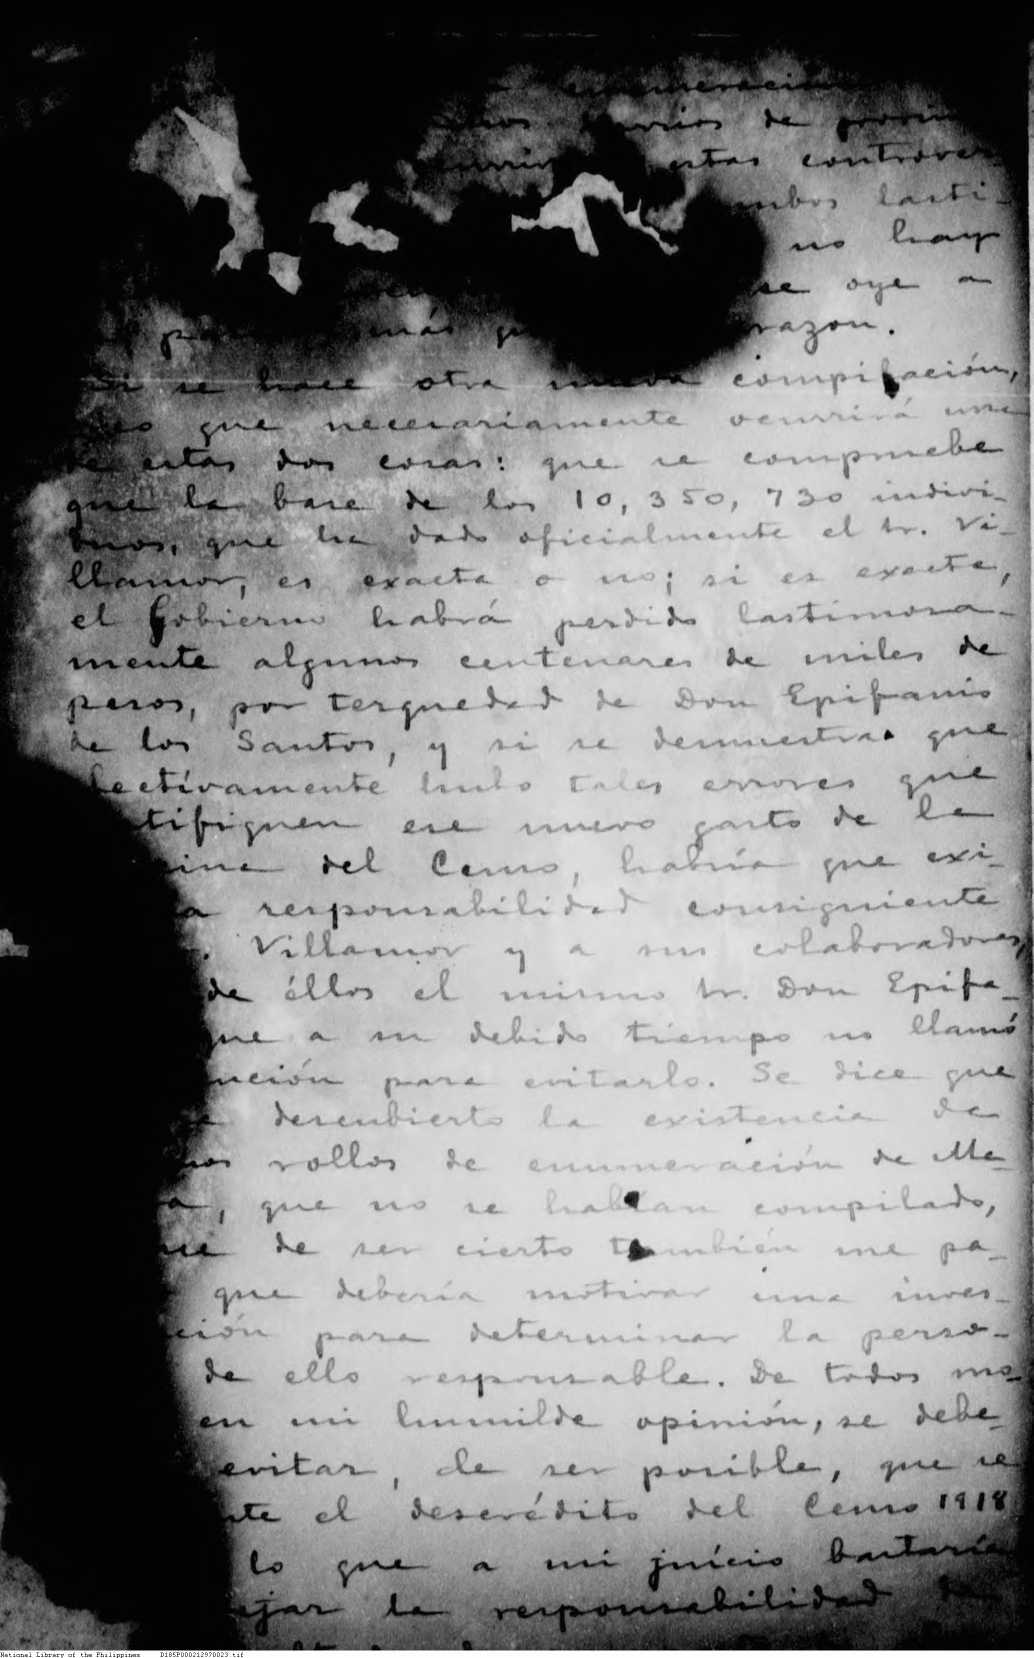 enumeracion
de
estas controver-
lasti-
no hay
se oye a
más razon.
se hace otra nueva compilación,
que necesariamente ocurrirá una
de estas dos cosas: que se compruebe
que la base de los 10,350,730 indivi-
duos, que ha dado oficialmente el Sr. Vi-
llamor, es exacta o no; si es exacta,
el Gobierno habrá perdido lastimosa-
mente algunos centenares de miles de
pesos, por terquedad de Don Epifanio
de los Santos, y si se demuestra que
fectívamente hubo tales errores que
tifiquen ese nuevo gasto de la
cina del Censo, habría que exi-
a responsabilidad consiguiente
. Villamor y a sus colaboradores,
de éllos el mismo Sr. Don Epifa-
que a su debido tiempo no llamó
nción para evitarlo. Se dice que
descubierto la existencia de
rollos de enumeración de Ma-
a, que no se habían compilado,
ue de ser cierto también me pa-
que debería motivar una inves-
ción para determinar la perso-
de ello responsable. De todos mo-
en mi humilde opinión, se debe-
evitar, de ser posible, que se
nte el descrédito del Censo 1918
lo que a mi juício bastaría
ejar la responsabilidad de
National Library of the Philippines D185P000212970023.tif